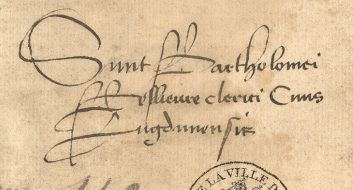 Sunt Bartholomei
Bellieure clerici Civis
Lugdunensis
DE LA VILLE D